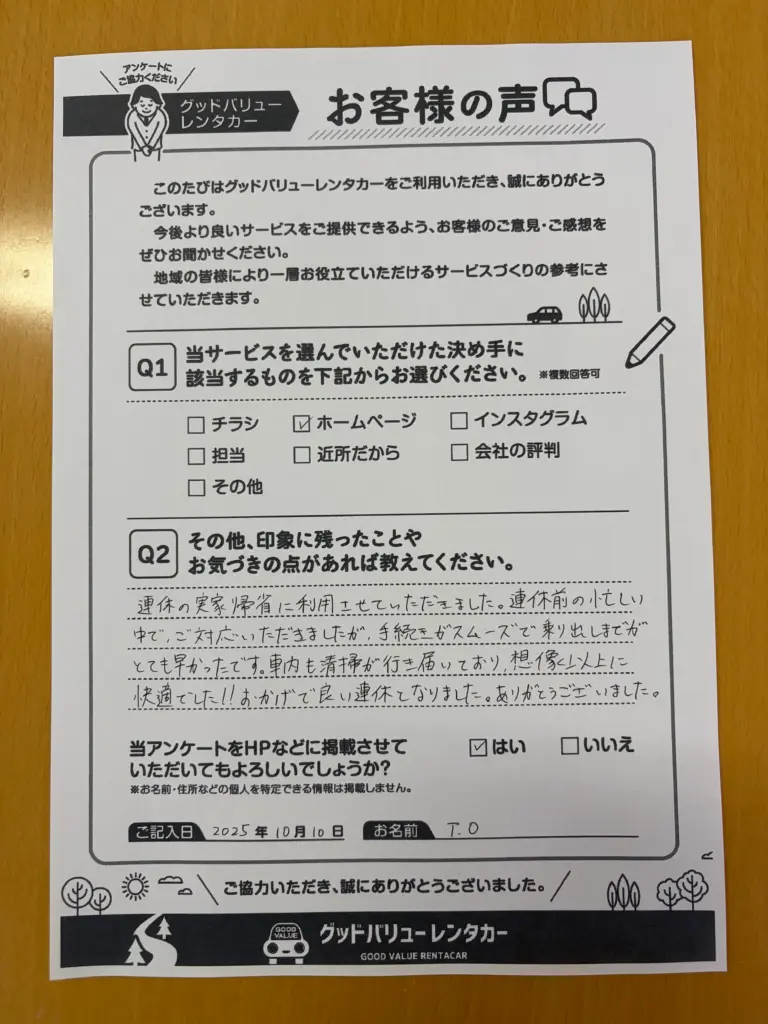 アンケートに
ご協力ください
グッドバリュー
レンタカー
お客様の声
このたびはグッドバリューレンタカーをご利用いただき、誠にありがとう
ございます。
今後より良いサービスをご提供できるよう、お客様のご意見・ご感想を
ぜひお聞かせください。
地域の皆様により一層お役立ていただけるサービスづくりの参考にさ
せていただきます。
Q1 当サービスを選んでいただけた決め手に
該当するものを下記からお選びください。 ※複数回答可
□ チラシ ☑ ホームページ □ インスタグラム
□ 担当 □ 近所だから □ 会社の評判
□ その他
Q2 その他、印象に残ったことや
お気づきの点があれば教えてください。
連休の実家帰省に利用させていただきました。連休前の忙しい
中で、ご対応いただきましたが、手続きがスムーズで乗り出しまでが
とても早かったです。車内も清掃が行き届いており、想像以上に
快適でした!!おかげで良い連休となりました。ありがとうございました。
当アンケートをHPなどに掲載させて
いただいてもよろしいでしょうか?
☑ はい □ いいえ
※お名前・住所などの個人を特定できる情報は掲載しません。
ご記入日 2025年10月10日 お名前 T.O
ご協力いただき、誠にありがとうございました。
GOOD
VALUE
グッドバリューレンタカー
GOOD VALUE RENTACAR